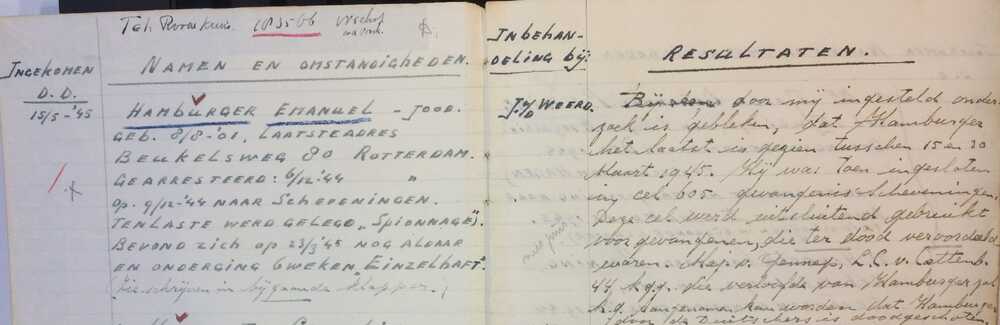 Tel. 183566
INGEKOMEN
D.D.
15/5-'45
NAMEN EN OMSTANDIGHEDEN.
HAMBURGER EMANUEL - JOOD.
GEB. 8/8-'01, LAATSTE ADRES
BEUKELSWEG 80 ROTTERDAM.
GEARRESTEERD: 6/12-'44 "
OP. 9/12-'44 NAAR SCHEVENINGEN.
TEN LASTE WERD GELEGD „SPIONNAGE".
BEVOND ZICH OP 23/3 '45 NOG ALDAAR
EN ONDERGING 6 WEKEN „EINZELHAFT".
(zie schrijven in bijgaande klapper.)
IN BEHAN-
DELING BIJ:
v/d WOERD.
RESULTATEN.
door mij ingesteld onder
zoek is gebleken, dat Hamburger
het laatst is gezien tusschen 15 en 20
Maart 1945. Hij was toen ingesloten
in cel 605 gevangenis Scheveningen.
Deze cel werd uitsluitend gebruikt
voor gevangenen, die ter dood veroordeeld
waren. Mej. v. Gennep, L.C. v.
44 die verloofde van Hamburger
aangenomen kan worden dat Hamburger
door de Duitschers is doodgeschoten